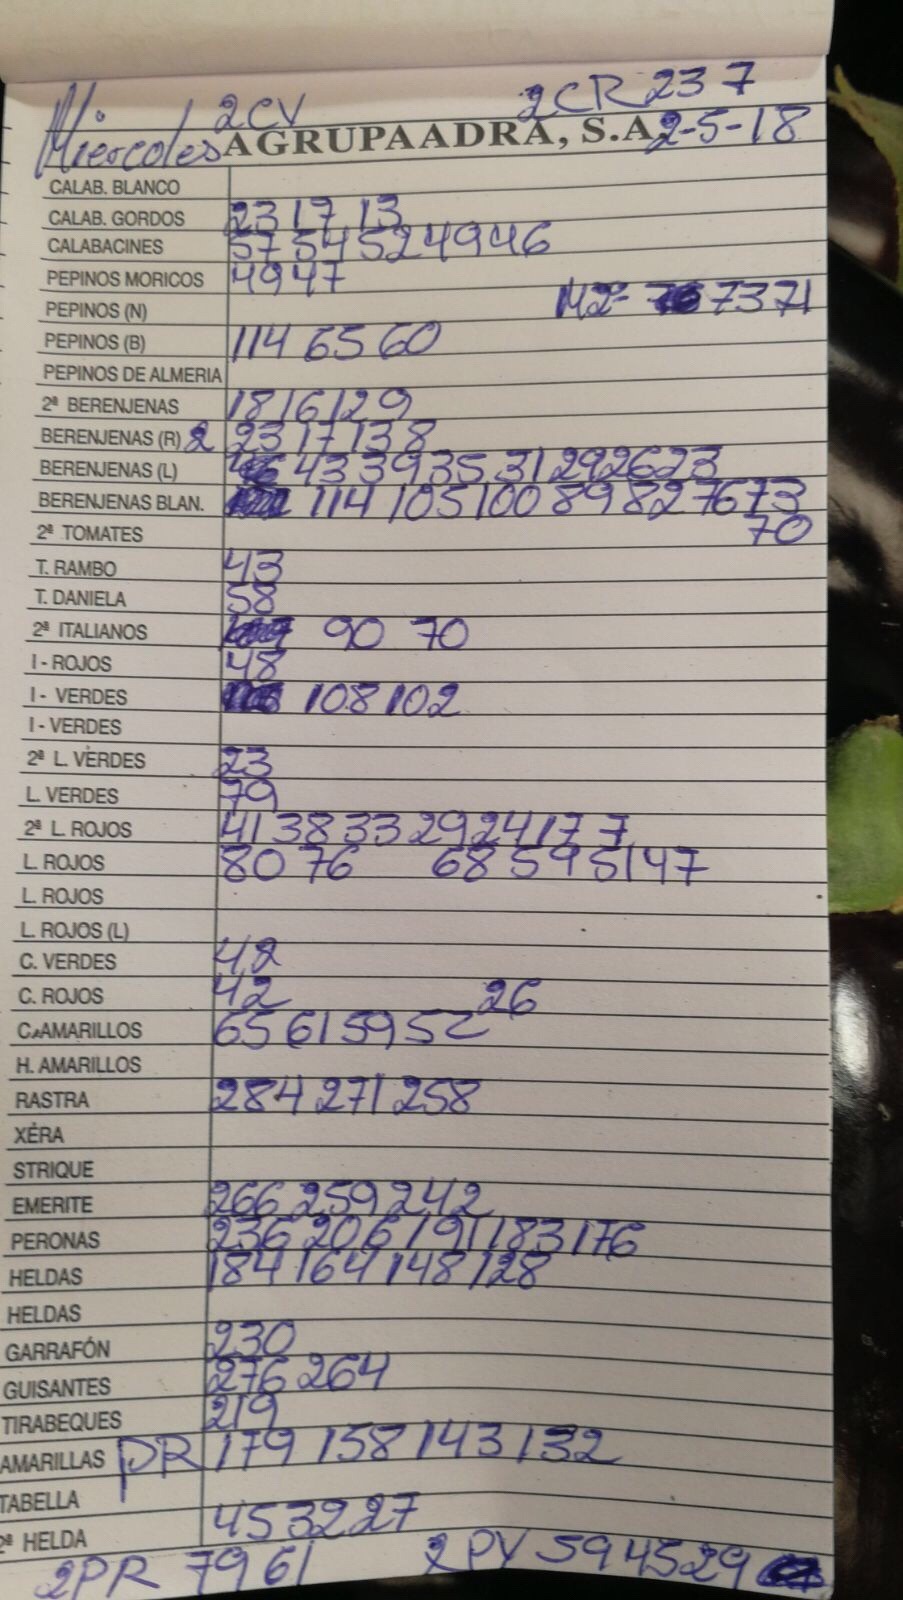 Miercoles 2CV 2CR 23 7
AGRUPAADRA, S.A. 2-5-18
CALAB. BLANCO
CALAB. GORDOS 23 17 13
CALABACINES 57 54 52 49 46
PEPINOS MORICOS 49 47
PEPINOS (N) 73 71
PEPINOS (B) 114 65 60
PEPINOS DE ALMERIA
2ª BERENJENAS 18 16 12 9
BERENJENAS (R) 2 23 17 13 8
BERENJENAS (L) 43 39 35 31 29 26 23
BERENJENAS BLAN. 114 105 100 89 82 76 73
2ª TOMATES 70
T. RAMBO 43
T. DANIELA 58
2ª ITALIANOS 90 70
I - ROJOS 48
I - VERDES 108 102
I - VERDES
2ª L. VERDES 23
L. VERDES 79
2ª L. ROJOS 41 38 33 29 24 17 7
L. ROJOS 80 76 68 59 51 47
L. ROJOS
L. ROJOS (L)
C. VERDES 42
C. ROJOS 42 26
C. AMARILLOS 65 61 59 52
H. AMARILLOS
RASTRA 284 271 258
XÉRA
STRIQUE
EMERITE 266 259 242
PERONAS 236 206 191 183 176
HELDAS 184 164 148 128
HELDAS
GARRAFÓN 230
GUISANTES 276 264
TIRABEQUES 219
AMARILLAS PR 179 158 143 132
TABELLA
2ª HELDA 45 32 27
2PR 79 61 2PV 59 45 29